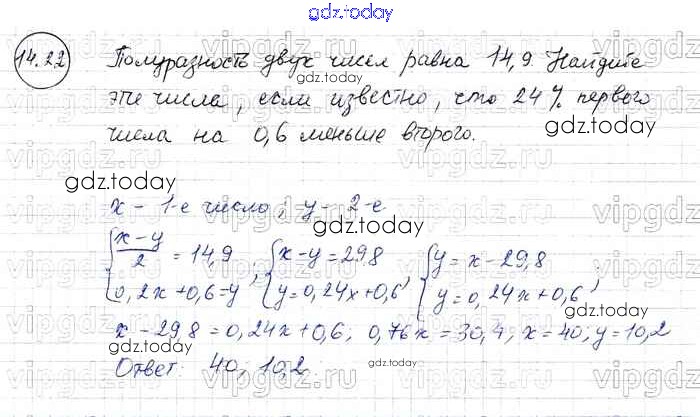 gdz.today
14.22
Полуразность двух чисел равна 14,9. Найдите
gdz.today
эти числа, если известно, что 24% первого
числа на 0,6 меньше второго.
gdz.today
vipgdz.ru
gdz.today
x - 1-е число; y - 2-е
gdz.today
{ (x-y)/2 = 14,9 ; { x-y=29,8 , { y=x-29,8 ,
{ 0,2x+0,6=y { y=0,24x+0,6 { y=0,24x+0,6
x-29,8=0,24x+0,6; 0,76x=30,4, x=40; y=10,2
gdz.today
Ответ: 40; 10,2
gdz.today